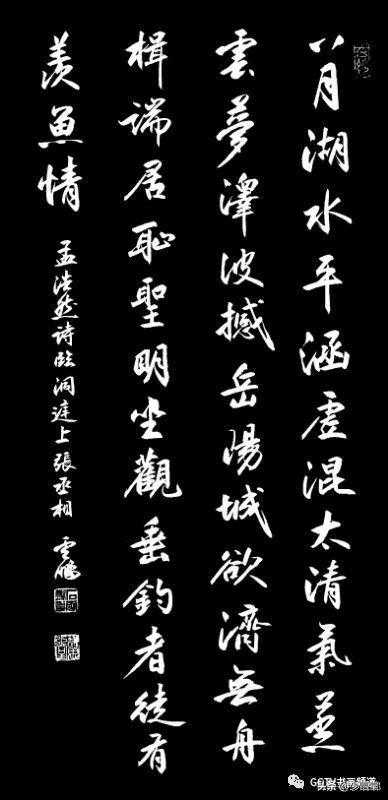 八月湖水平涵虛混太清氣蒸
雲夢澤波撼岳陽城欲濟無舟
楫端居耻聖明坐觀垂釣者徒有
羨魚情
孟浩然詩臨洞庭上張丞相
书画频道